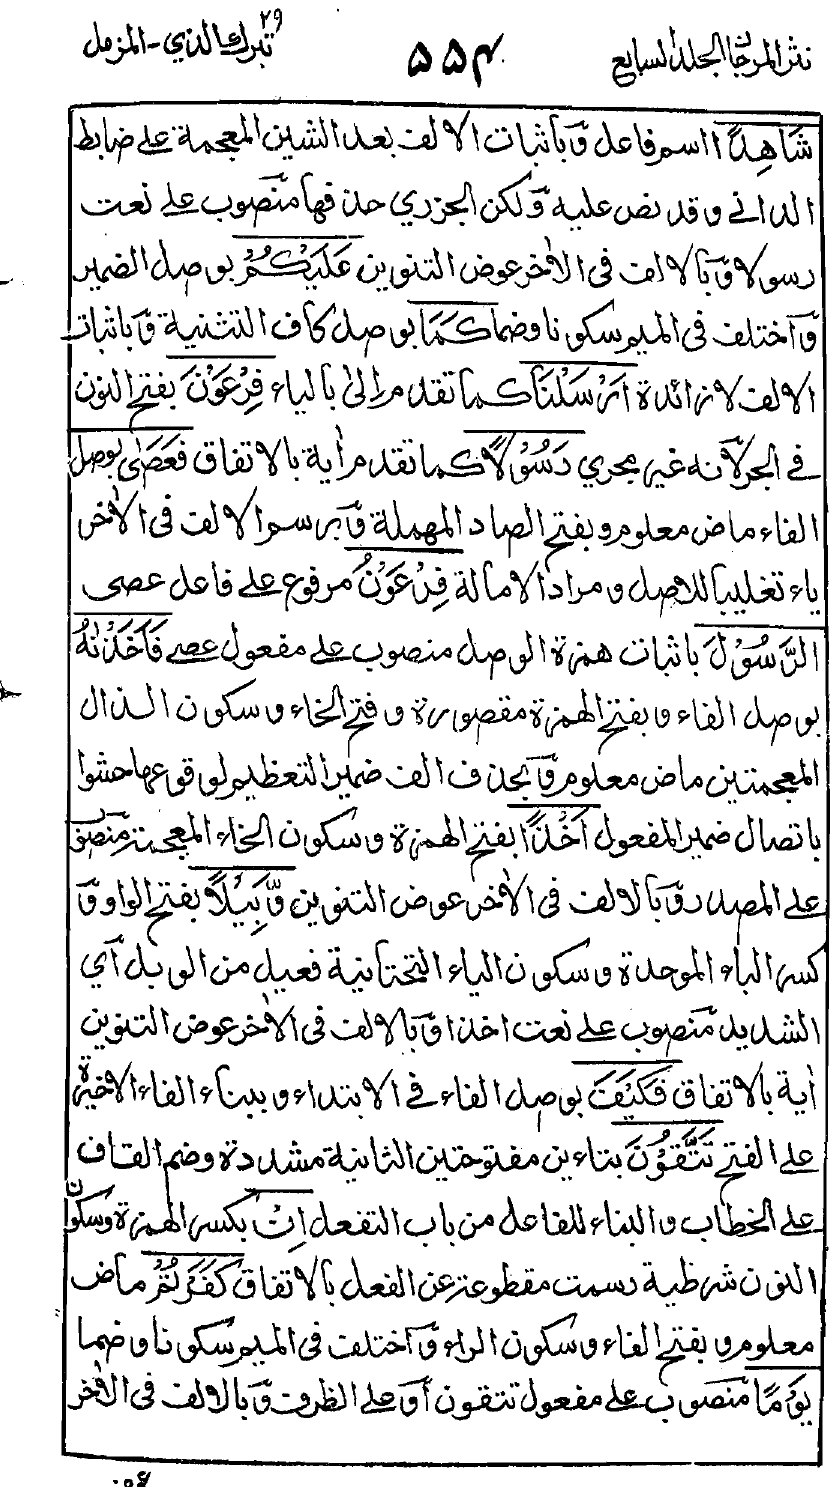 نثر المرجان الجلد السابع ۵۵۴ تبرك الذي ۲۹ - المزمل
شَاهِدًا اسم فاعل وَبأثبات الالف بعد الشين المعجمة على ضابط
الدانى وقد نص عليه وَلكن الجزري حذفها منصوب على نعت
رسولا وَبالالف فى الاٰخر عوض التنوين عَلَيْكُمْ بوصل الضمير
وَاختلف فى الميم سكونا وضما كَمَا بوصل كاف التثنية وَباثبات
الالف لانه زائدة اَرْسَلْنَا كما تقدم مر الىٰ بالياء فِرْعَوْنَ بفتح النون
في الجر لاَنه غير مجري رَسُوْلًا كما تقدم مر اٰية بالاتفاق فَعَصٰى بوصل
الفاء ماض معلوم وبفتح الصاد المهملة وَبرسم الالف فى الاٰخر
ياء تغليبا للاصل ومراد الامالة فِرْعَوْنُ مرفوع على فاعل عصى
الرَّسُوْلَ باثبات همزة الوصل منصوب على مفعول عصى فَاَخَذْنٰهُ
بوصل الفاء وبفتح الهمزة مقصورة وفتح الخاء وسكون الذال
المعجمتين ماض معلوم وَبحذف الف ضمير التعظيم لوقوعها حشوا
باتصال ضمير المفعول اَخْذًا بفتح الهمزة وسكون الخاء المعجمة منصوب
على المصدر وَبالالف فى الاٰخر عوض التنوين وَّبِيْلًا بفتح الواو وَ
كسر الباء الموحدة وسكون الياء التحتانية فعيل من الوبل أي
الشديد منصوب على نعت اخذا وَبالالف فى الاٰخر عوض التنوين
اٰية بالاتفاق فَكَيْفَ بوصل الفاء في الابتداء وببناء الفاء الاخيرة
على الفتح تَتَّقُوْنَ بتاءين مفتوحتين الثانية مشددة وضم القاف
على الخطاب والبناء للفاعل من باب التفعل اِنْ بكسر الهمزة وسكون
النون شرطية رسمت مقطوعة عن الفعل بالاتفاق كَفَرْتُمْ ماض
معلوم وبفتح الفاء وسكون الراء وَاختلف فى الميم سكونا وضما
يَوْمًا منصوب على مفعول تتقون أوَ على الظرف وَبالالف فى الاٰخر